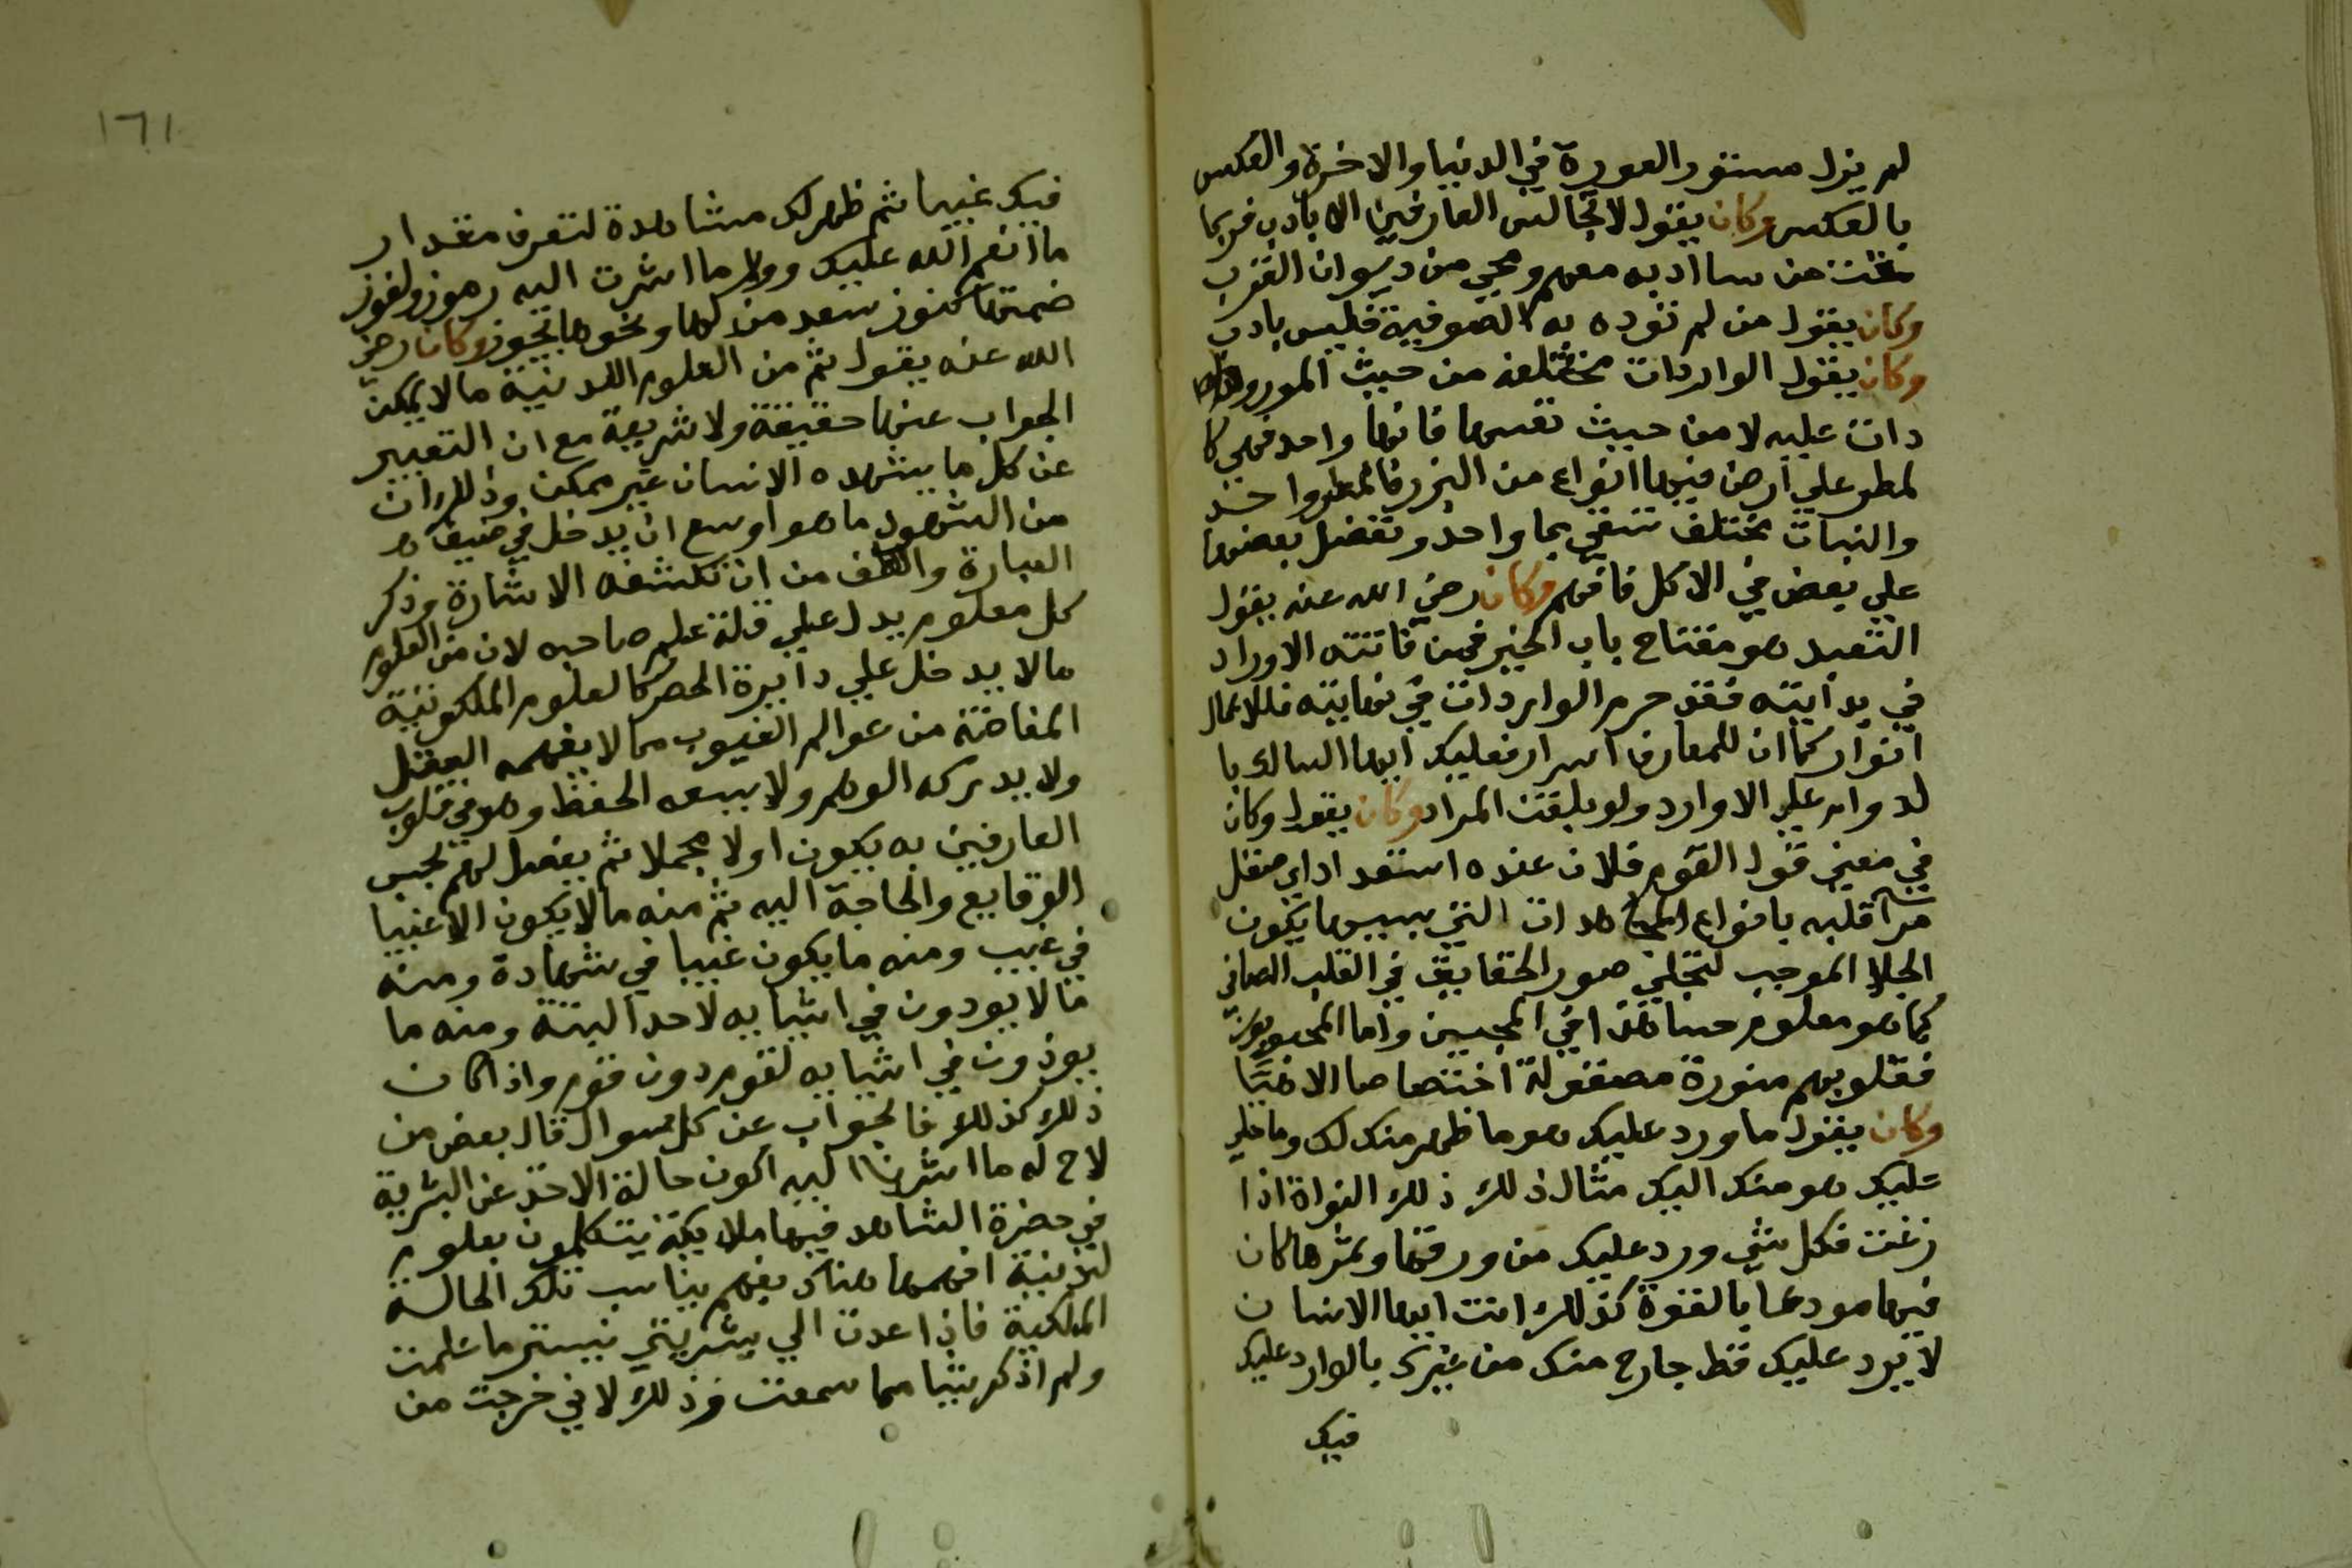 لم يزل مستور العورة في الدنيا والاخرة والعكس
بالعكس وكان يقول لا تجالس العارفين الا بادب فربما
مقت من سا ادبه معهم ومحي من ديوان القرب
وكان يقول من لم تؤده به الصوفية فليس بادب
وكان يقول الواردات مختلفه من حيث المورود
دات عليه لا من حيث نفسها فانها واحد فهي كا
لمطر علي ارض فيها انواع من البزر فالمطر واحد
والنبات مختلف تسقي بما واحد وتفضل بعضها
علي بعض في الاكل فافهم وكان رضي الله عنه يقول
التعبد هو مفتاح باب الخير فمن فاتته الاوراد
في بدايته فقد حرم الواردات في نهايته فللاعمال
انوار كما ان للمعارف اسرار فعليك ايها السالك با
لدوام علي الاوارد ولو بلغت المراد وكان يقول وكان
في معني قول القوم فلان عنده استعداد اي صقل
مرآ قلبه بانواع المجاهدات التي بسببها يكون
الجلا الموجب لتجلي صور الحقايق في القلب الصافي
كما هو معلوم حسا هذا في المحبين واما المحبوبون
فقلوبهم منورة مصقولة اختصاصا الاهيا
وكان يقول ما ورد عليك هو ما ظهر منك لك وما خلي
عليك هو منك اليك مثال ذلك ذلك النواة اذا
زغت فكل شي ورد عليك من ورقها وثمرها كان
فيها مودعا بالقوة كذلك انت ايها الانسان
لا يرد عليك قط خارج منك من غيرك بالوارد عليك
فيك
١٦١
فيك غيبا ثم ظهر لك مشاهدة لتعرف مقدار
ما انعم الله عليك وورا ما اشرت اليه رموز ولغوز
ضمنها كنوز سعد من لها ونحوها يجوز وكان رضي
الله عنه يقول ثم من العلوم اللدنية ما لا يمكن
الجواب عنها حقيقة ولا شريعة مع ان التعبير
عن كل ما يشهده الانسان غير ممكن وذلك ان
من الشهود ما هو اوسع ان يدخل في ضيقا
العبارة والطف من ان تكشفه الاشارة وذكر
كل معلوم يدل علي قلة علم صاحبه لان من العلوم
ما لا يدخل علي دايرة الحصر كالعلوم الملكوتية
المفاضة من عوالم الغيوب مما لا يفهمه العقل
ولا يدركه الوهم ولا يسعه الحفظ وهو في قلوب
العارفين به يكون اولا مجملا ثم يفصل لهم بحسب
الوقايع والحاجة اليه ثم منه ما لا يكون الا غيبا
في غيب ومنه ما يكون غيبا في شهادة ومنه
ما لا يودون في اثيابه لاحد البتة ومنه ما
يوذون في اثيابه لقوم دون قوم واذا كان
ذلك كذلك فالجواب عن كل سوال قال بعض من
لاح له ما اشرنا اليه اكون حالة الاخذ عن البشرية
في حضرة الشاهد فيها ملايكة يتكلمون بعلوم
لدنية افهمها هناك بفهم يناسب تلك الحالة
الملكية فاذا عدت الي بشريتي نسيت ما علمت
ولم اذكر شيا مما سمعت وذلك لاني خرجت من